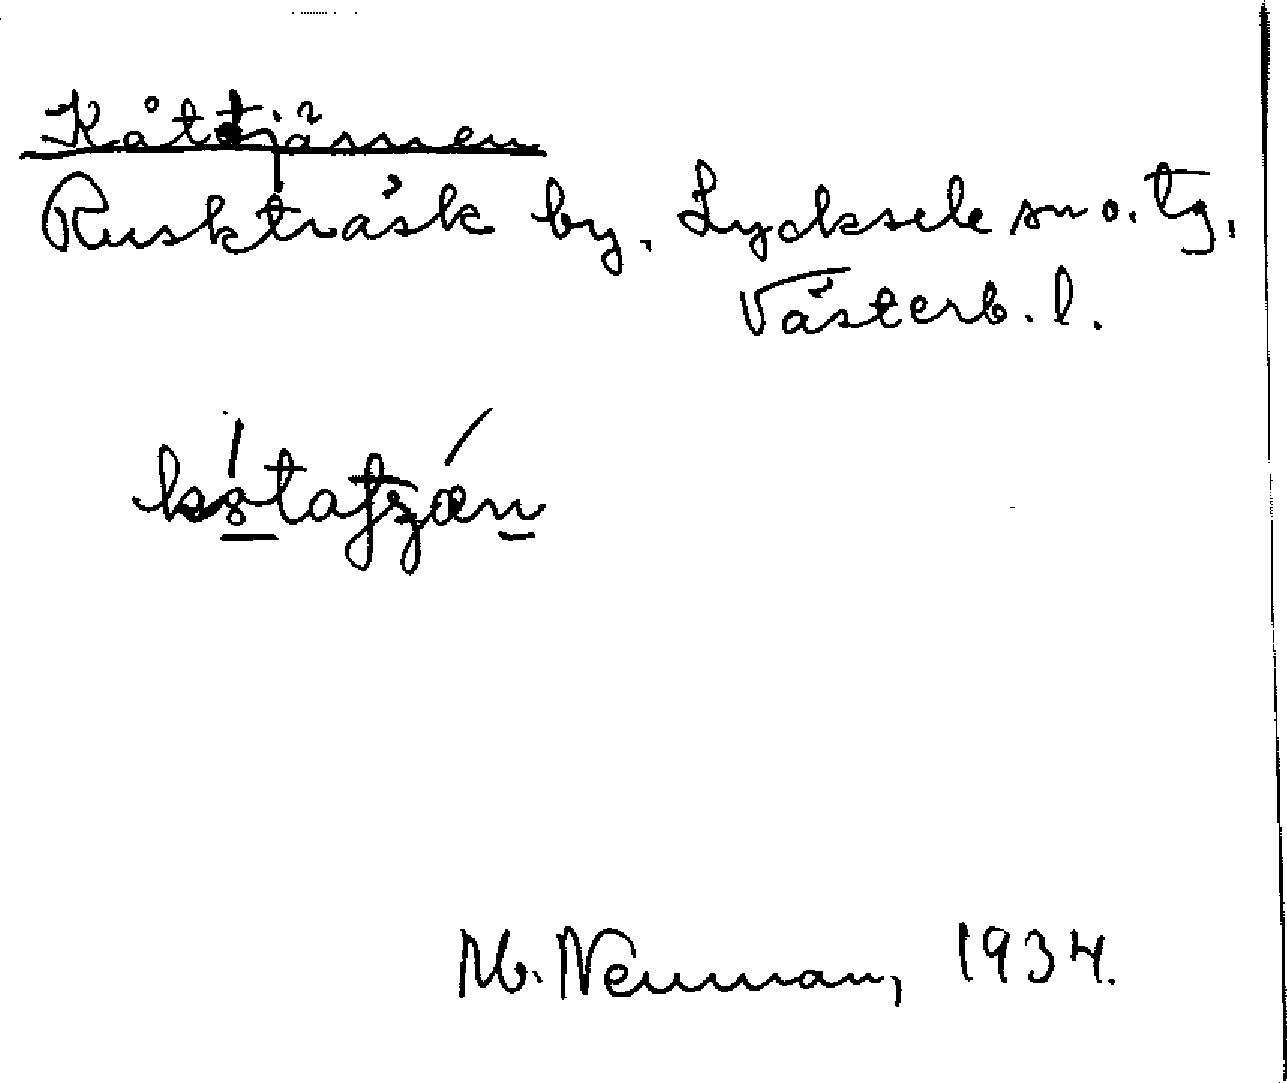 Kåttjärnen
Ruskträsk by. Lycksele sn o. tg.
Västerb. l.
M. Neuman, 1934.